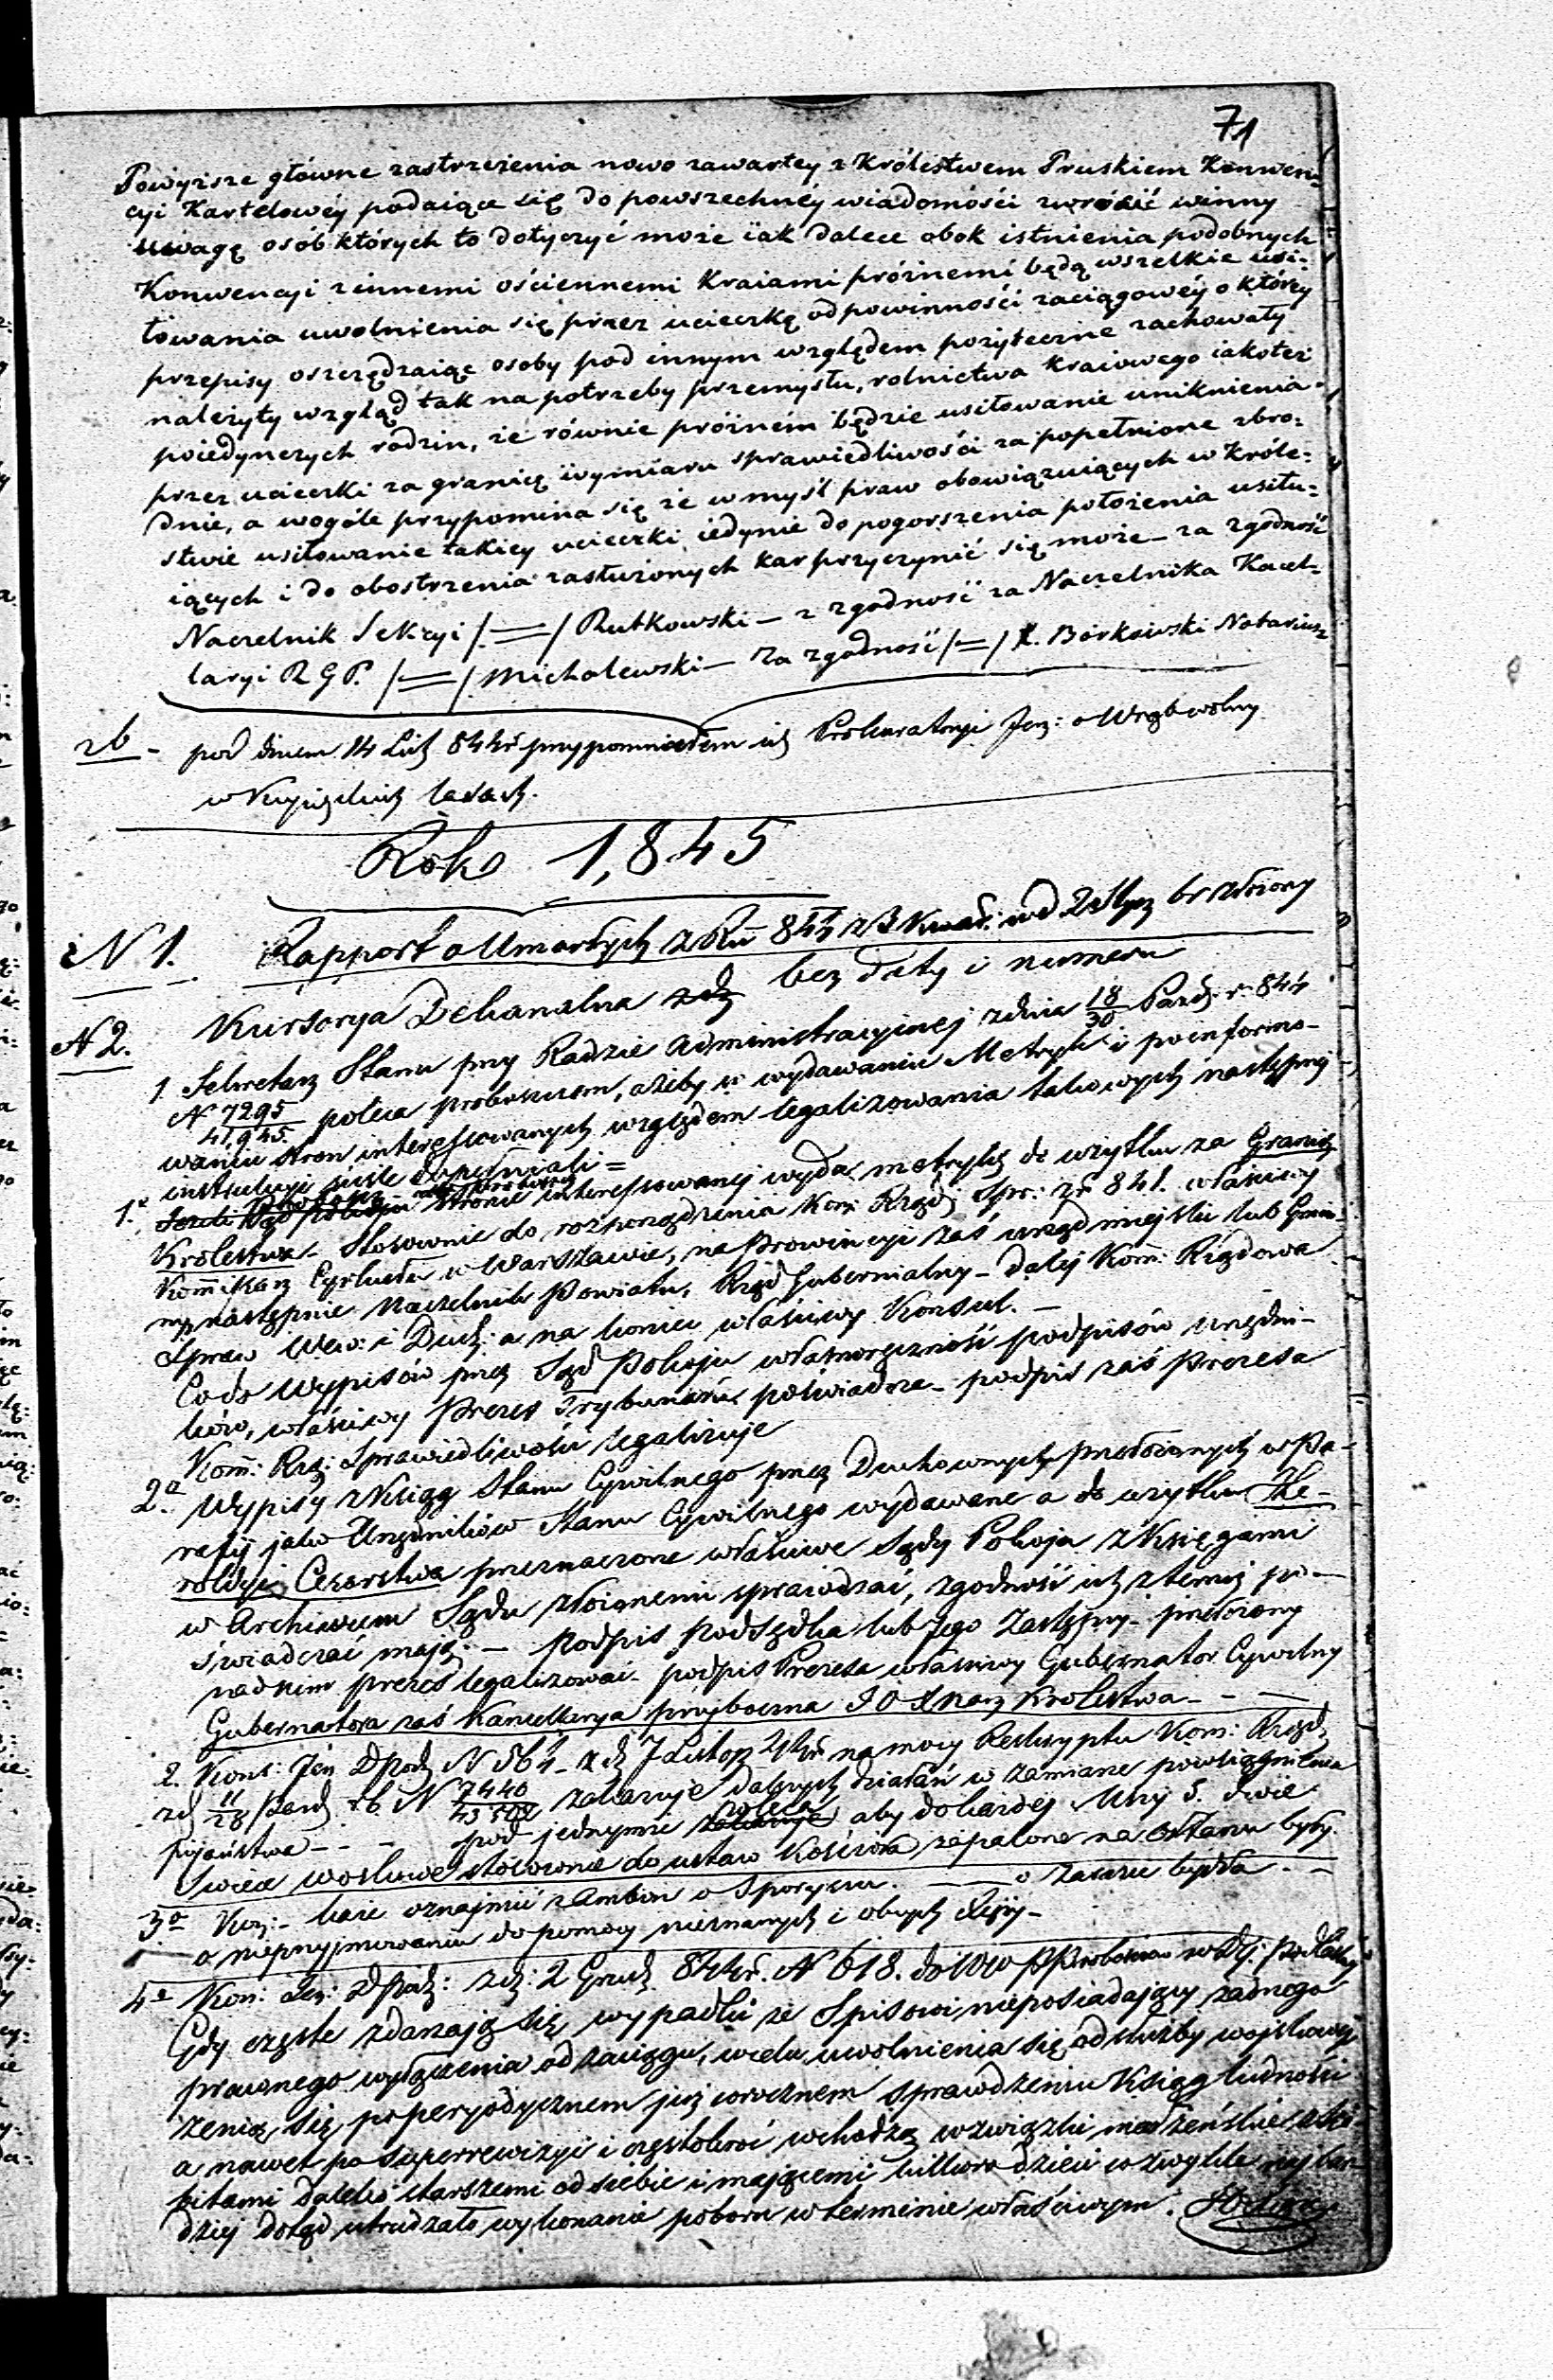 71
Powyższe główne zastrzeżenia nowo zawartey z Królestwem Pruskiem Konwen=
cyi Kartelowéy podaiące się do powszechnéy wiadomośći zwróćić winny
uwagę osób których to dotyczyć może iak dalece obok istnienia podobnych
Konwencyi z innemi ościennemi Kraiami próżnemi będą wszelkie usi=
łowania uwolnienia się przez ucieczkę od powinnośći zaciągowéy o którey
przepisy oszczędzaiąc osoby pod innym względem pożyteczne zachowały
należyty wzgląd tak na potrzeby przemysłu, rolnictwa kraiowego iakoteż
poiedynczych rodzin, że równie próżném będzie usiłowanie uniknienia
przez ucieczki za granicę wymiaru sprawiedliwośći za popełnione zbro=
dnie, a wogóle przypomina się że w myśl praw obowiązuiących w Króle=
stwie usiłowanie takiey ucieczki iedynie do pogorszenia położenia usiłu=
iących i do obostrzenia zasłużonych kar przyczynić się może – za zgodność
Naczelnik Sekcyi /=/ Rutkowski – z zgodność za Naczelnika Kancel=
laryi R G P. /=/ Michalewski – Za zgodność /=/ Borkowski Notariusz
pod dniem 14 844 przypomniałem Prokuratoryi Jen: o
w
Roko 1,845
N 1. Rapport o Umarłych z Ru 844 złożony
N 2. Kursorya Dekanalna bez daty i numeru
1. Sekretarz Stanu przy Radzie Administracyjnej z dnia 18/30 Paźd. r. 844
N 7295/41,945 poleca proboszczom, ażeby w wydawaniu Metryk i poinformo-
waniu stron interessowanych względem legalizowania takowych następnej
instrukcyi ściśle dopełniali =
1.° stronie interessowanej wyda metrykę do użytku za Granicą
Królestwa – Stosownie do rozporządzenia Kom: Rząd: Spr: 841. właściwy
Kommisarz Cyrkułu w Warszawie, na Prowincyi zaś urząd miejski lub Gmin-
ny, następnie Naczelnik Powiatu, Rząd Gubernialny – dalej Kom: Rządowa
Spraw Wew: i Duch: a na końcu właściwy Konsul. –
Co do wypisów przez Sąd Pokoju własnoręczność podpisów urzędni-
ków, właściwy Prezes Trybunału poświadcza – podpis zaś Prezesa
Kom: Rz: Sprawiedliwości legalizuje
2° Wypisy z Ksiąg Stanu Cywilnego przez Duchownych przełożonych w Pa-
rafij jako Urzędników Stanu Cywilnego wydawane a do użytku He-
roldyi Cesarstwa przeznaczone właściwe Sądy Pokoju z Księgami
w Archiwum Sądu złożonemi sprawdzać, zgodność ich z temiż po-
świadczać mają. – Podpis Podsędka lub Jego Zastępcy – przełożony
nad nim prezes legalizować – podpis Prezesa właściwy Gubernator Cywilny
Gubernatora zaś Kancellarya przyboczna J O X Namj Królestwa – – –
2. Kons: Jen: D Podl N 564 – z d 7 Listop na mocy Reskryptu Kom: Rząd
z d 11/28 Paźd. N 7440 zakazuje dalszych działań w zamiarze powściągnienia
pijaństwa – – – pod jednymże zaleca aby do każdej Mszy S. dwie
Świece woskowe stosownie do ustaw Kościoła zapalone na Ołtarzu były.
3° Kon: – każe oznajmić z Ambon o Sporyszu. – – o bydła. – –
o nieprzyjmowaniu do pomocy nieznanych i obcych Xięży –
4° Kon: Jen: D Podl: z d: 2 Grud. 844r. N 618. do WW Proboszczów w Dyj: Podlaskiej
Gdy częste zdarzają się wypadki że Spisowi nieposiadający żadnego
prawnego wyłączenia od zaciągu, w celu uwolnienia się od służby wojskowej
żenią się, po peryodycznem już corocznem sprawdzeniu Ksiąg ludności
a nawet po superrewizyi i częstokroć wchodzą w związki małżeńskie z ko-
bitami daleko starszemi od siebie i mającemi kilkoro dzieci co zwykle najbar-
dziej dotąd utrudzało wykonanie poboru w terminie właściwym.